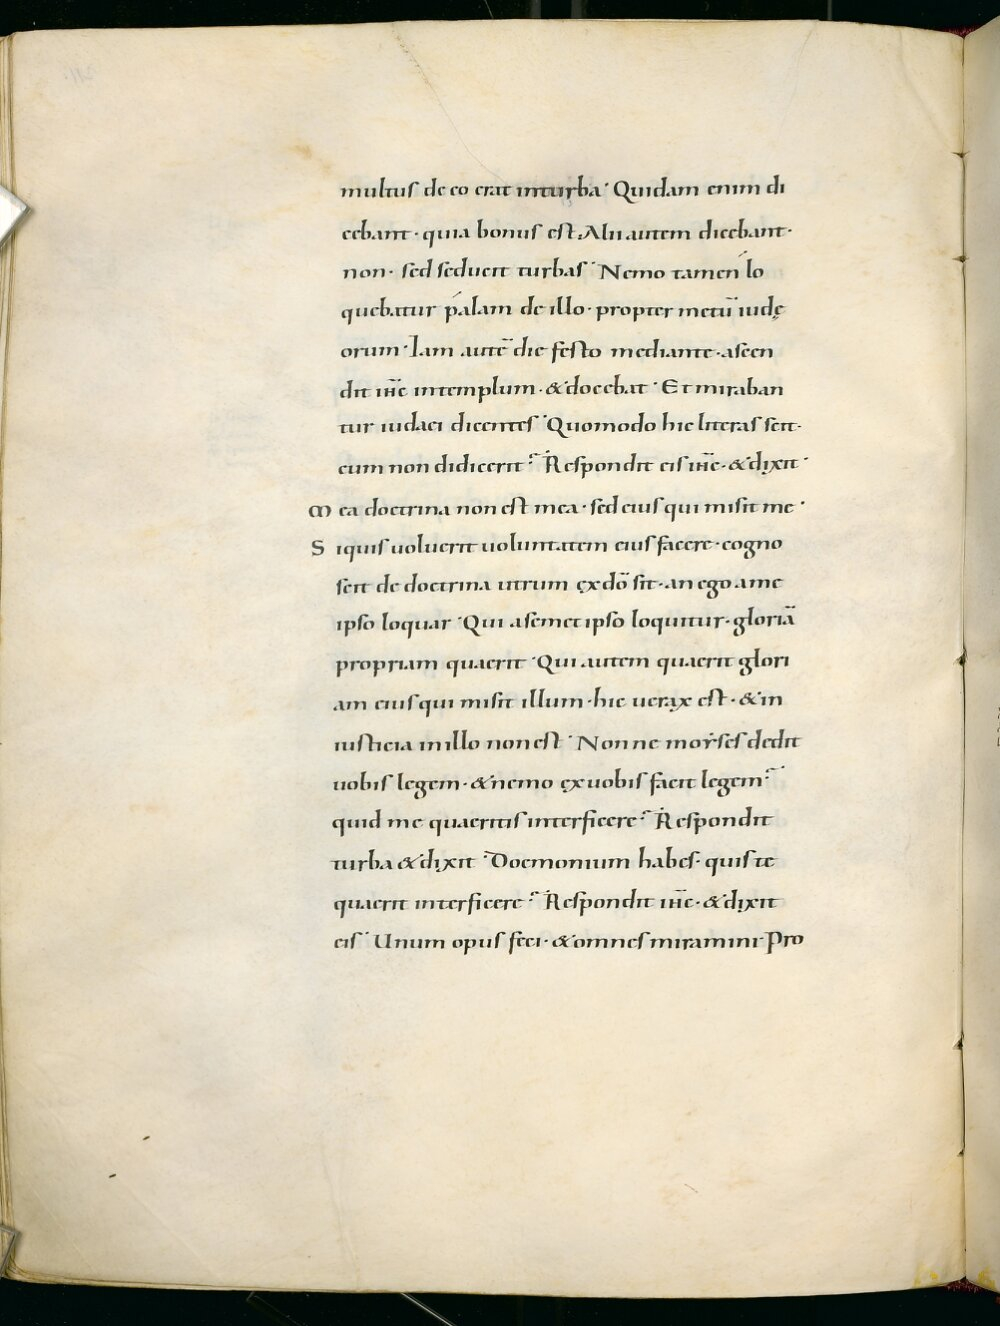 multus de eo erat inturba· Quidam enim di
cebant· quia bonus est· Alii autem dicebant·
non· sed seducit turbas· Nemo tamen lo
quebatur palam de illo· propter metū iudę
orum· Iam autē die festo mediante· ascen
dit ihc̄ intemplum· &docebat· Et miraban
tur iudaei dicentes· Quomodo hic literas scit·
cum non didicerit? Respondit eis ihc̄· &dixit·
Mea doctrina non est mea· sed eius qui misit me·
Siquis uoluerit uoluntatem eius facere· cogno
scit de doctrina utrum exdō sit· an ego ame
ipso loquar· Qui asemetipso loquitur· gloriā
propriam quaerit· Qui autem quaerit glori
am eius qui misit illum· hic uerax est· &in
iusticia inillo non est· Nonne moyses dedit
uobis legem· &nemo exuobis facit legem?
quid me quaeritis interficere? Respondit
turba &dixit· Doemonium habes· quis te
quaerit interficere? Respondit ihc̄· &dixit
eis· Unum opus feci· &omnes miramini· Pro